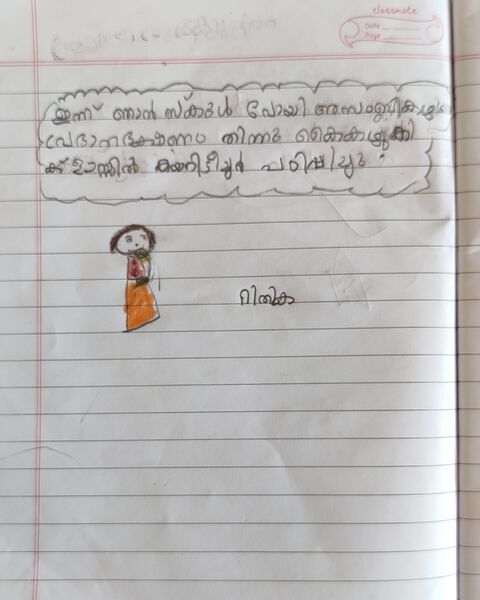 classmate
Date
Page
ഇന്ന് ഞാൻ സ്കൂൾ പോയി അസംബ്ലികഴിഞ്ഞ്
പ്രഭാതഭക്ഷണം തിന്നു കൈകഴുകി
ക്ലാസ്സിൽ കയറിടീച്ചർ പഠിപ്പിച്ചു
റിതിക